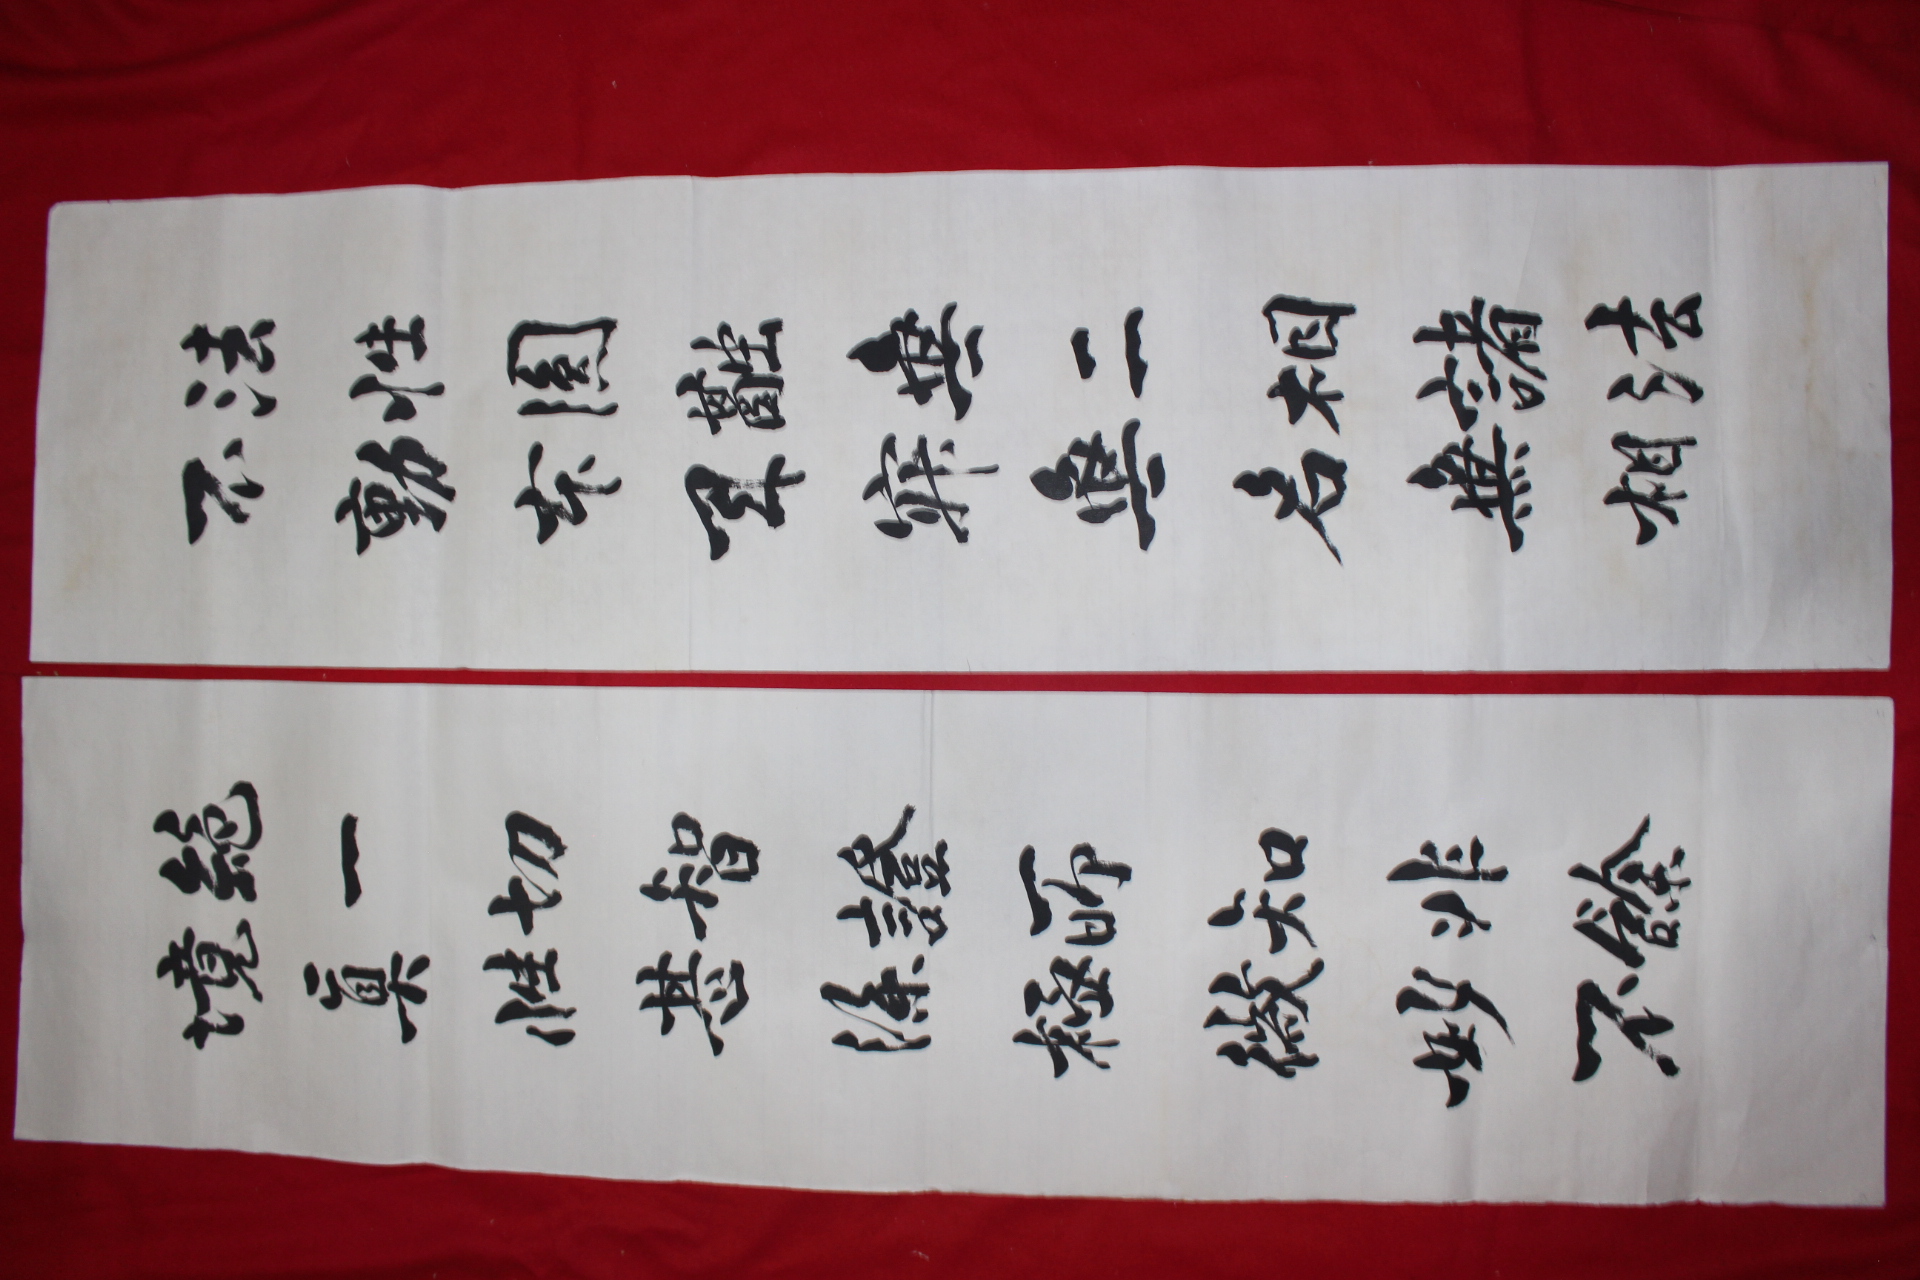 法性圓融無二相諸法
不動本來寂無名無相
絶一切智證所知非餘
境眞性甚深極微妙不